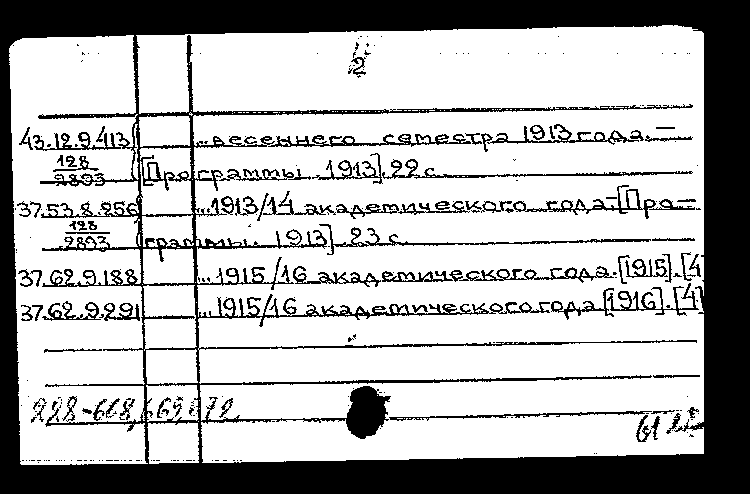 2
43.12.9.413 ...весеннего семестра 1913 года. —
128
2893 [Программы. 1913]. 22 с.
37.53.8.256 ...1913/14 академического года. — [Про—
128
2893 граммы. 1913]. 23 с.
37.62.9.188 ...1915/16 академического года. [1915]. [4]
37.62.9.291 ...1915/16 академического года [1916]. [4]
228-668,669,672
61